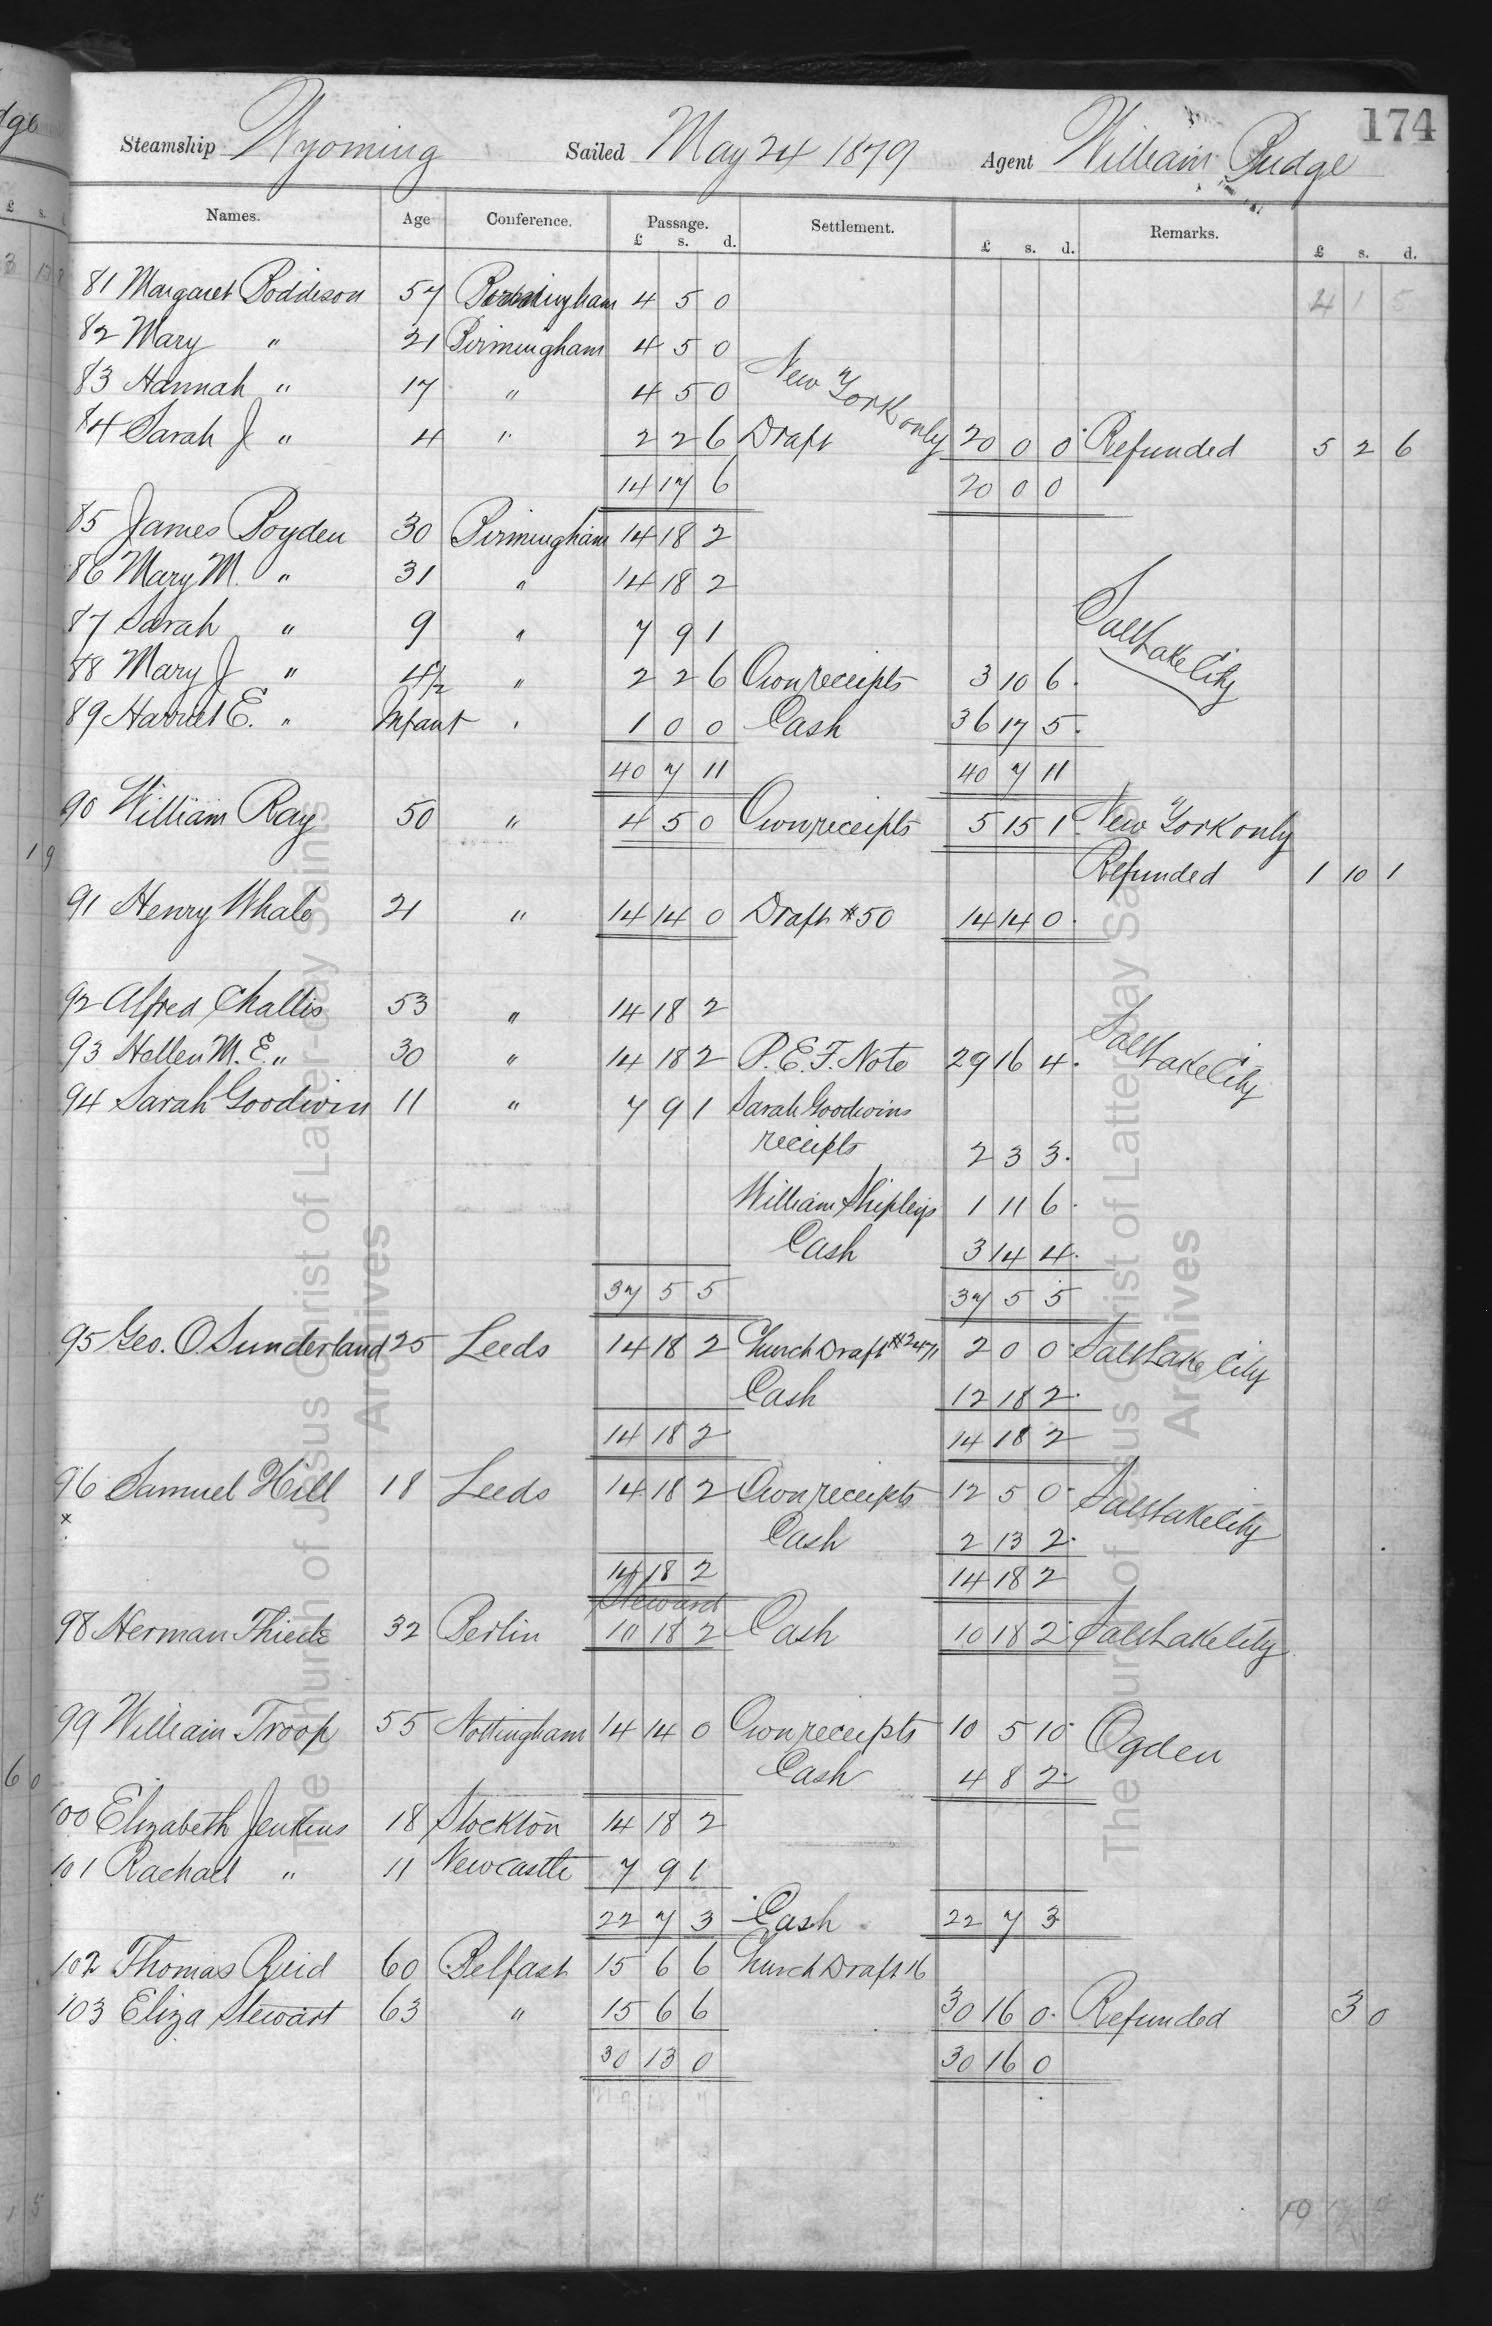 174
Steamship Wyoming Sailed May 24 1879 Agent William Budge
Names. Age Conference. Passage. Settlement. £ s. d. Remarks. £ s. d.
£ s. d.
81 Margaret Boddison 57 4 5 0 4 1 5
82 Mary " 21 Birmingham 4 5 0
83 Hannah " 17 " 4 5 0 New York only
84 Sarah J " 4 " 2 2 6 Draft 20 0 0 Refunded 5 2 6
14 17 6 20 0 0
85 James Boyden 30 Birmingham 14 18 2
86 Mary M. " 31 " 14 18 2
87 Sarah " 9 " 7 9 1 Salt Lake City
88 Mary J " 4½ " 2 2 6 Own receipts 3 10 6
89 Harriet E. " Infant " 1 0 0 Cash 36 17 5
40 7 11 40 7 11
90 William Ray 50 " 4 5 0 Own receipts 5 15 1 New York only
Refunded 1 10 1
91 Henry Whale 21 " 14 14 0 Draft #50 14 14 0
92 Alfred Challis 53 " 14 18 2
93 Hellen M. E. " 30 " 14 18 2 P. E. F. Note 29 16 4 Salt Lake City
94 Sarah Goodwin 11 " 7 9 1 Sarah Goodwins
receipts 2 3 3
William Shipleys 1 11 6
Cash 3 14 4
37 5 5 37 5 5
95 Geo. O. Sunderland 25 Leeds 14 18 2 Church Draft #2471 2 0 0 Salt Lake City
Cash 12 18 2
14 18 2 14 18 2
96 Samuel Hill 18 Leeds 14 18 2 Own receipts 12 5 0 Salt Lake City
x Cash 2 13 2
14 18 2 14 18 2
Steward
98 Herman Thiede 32 Berlin 10 18 2 Cash 10 18 2 Salt Lake City
99 William Troop 55 Nottingham 14 14 0 Own receipts 10 5 10 Ogden
Cash 4 8 2
100 Elizabeth Jenkins 18 Stockton 14 18 2
101 Rachael " 11 Newcastle 7 9 1
22 7 3 Cash 22 7 3
102 Thomas Reid 60 Belfast 15 6 6 Church Draft 16
103 Eliza Stewart 63 " 15 6 6 30 16 0 Refunded 3 0
30 13 0 30 16 0
The Church of Jesus Christ of Latter-day Saints
Archives
The Church of Jesus Christ of Latter-day Saints
Archives